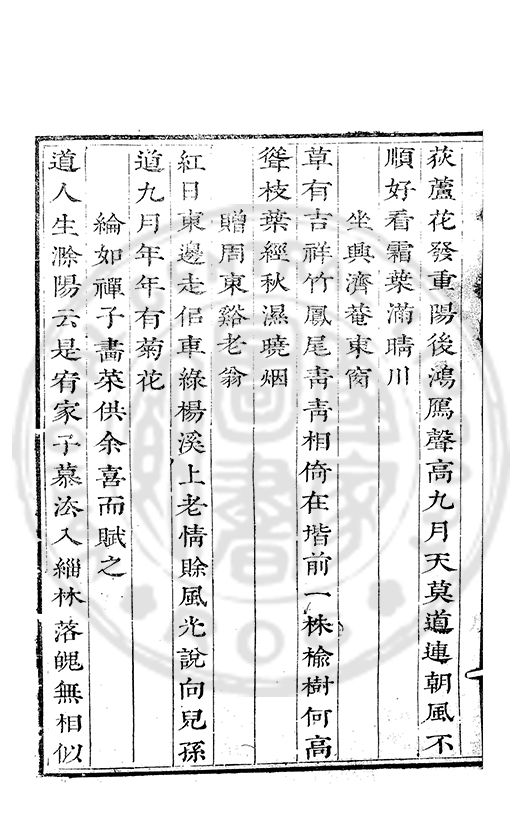 荻蘆花發重陽後鴻鴈聲高九月天莫道連朝風不
順好看霜葉滿晴川
坐興濟菴東窗
草有吉祥竹鳳尾青青相倚在堦前一株榆樹何高
聳枝葉經秋濕曉烟
贈周東谿老翁
紅日東邊走佀車綠楊溪上老情賒風光說向兒孫
道九月年年有菊花
綸如禪子畵菜供余喜而賦之
道人生滁陽云是宥家子慕浍入緇林落魄無相似